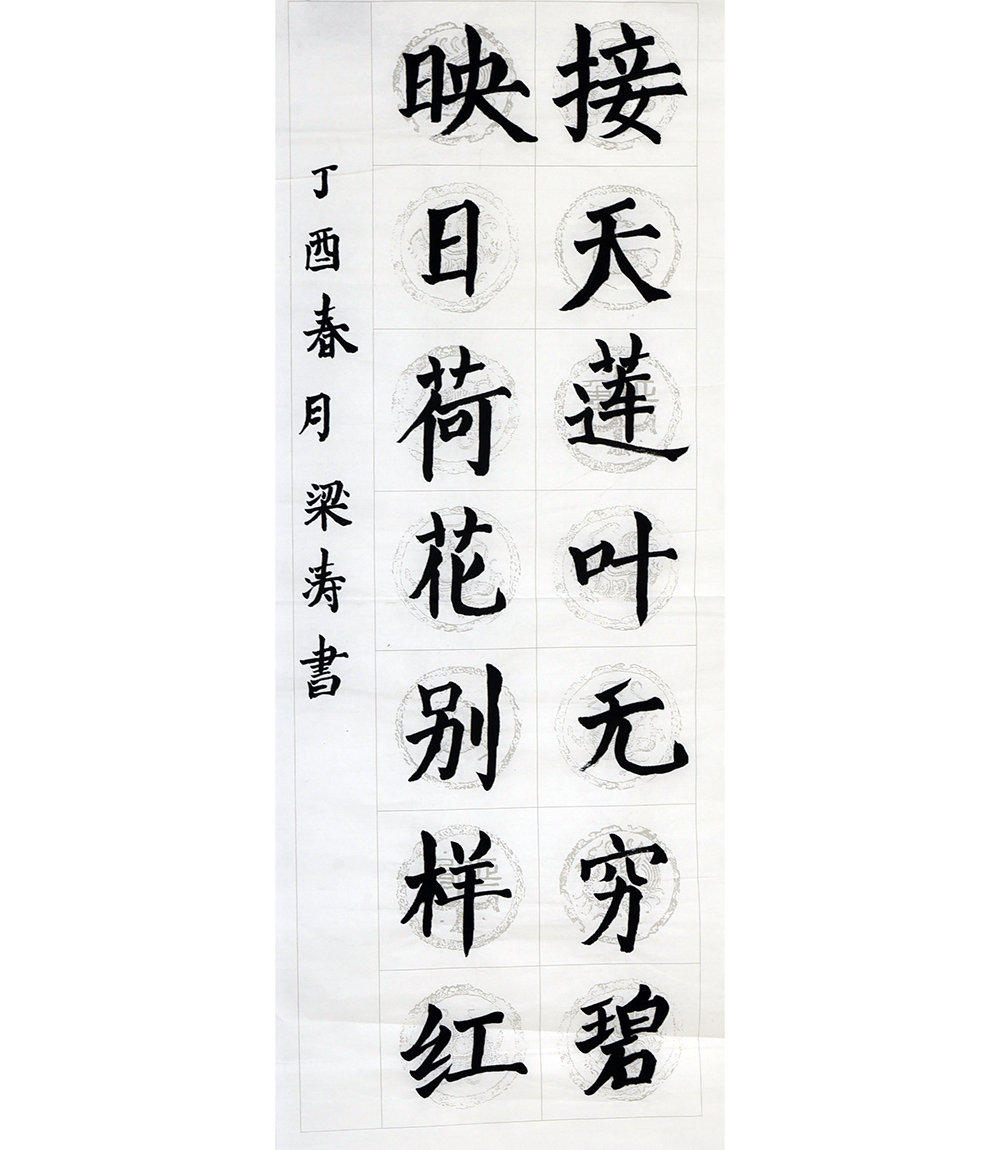 接天莲叶无穷碧
映日荷花别样红
丁酉春月梁涛書